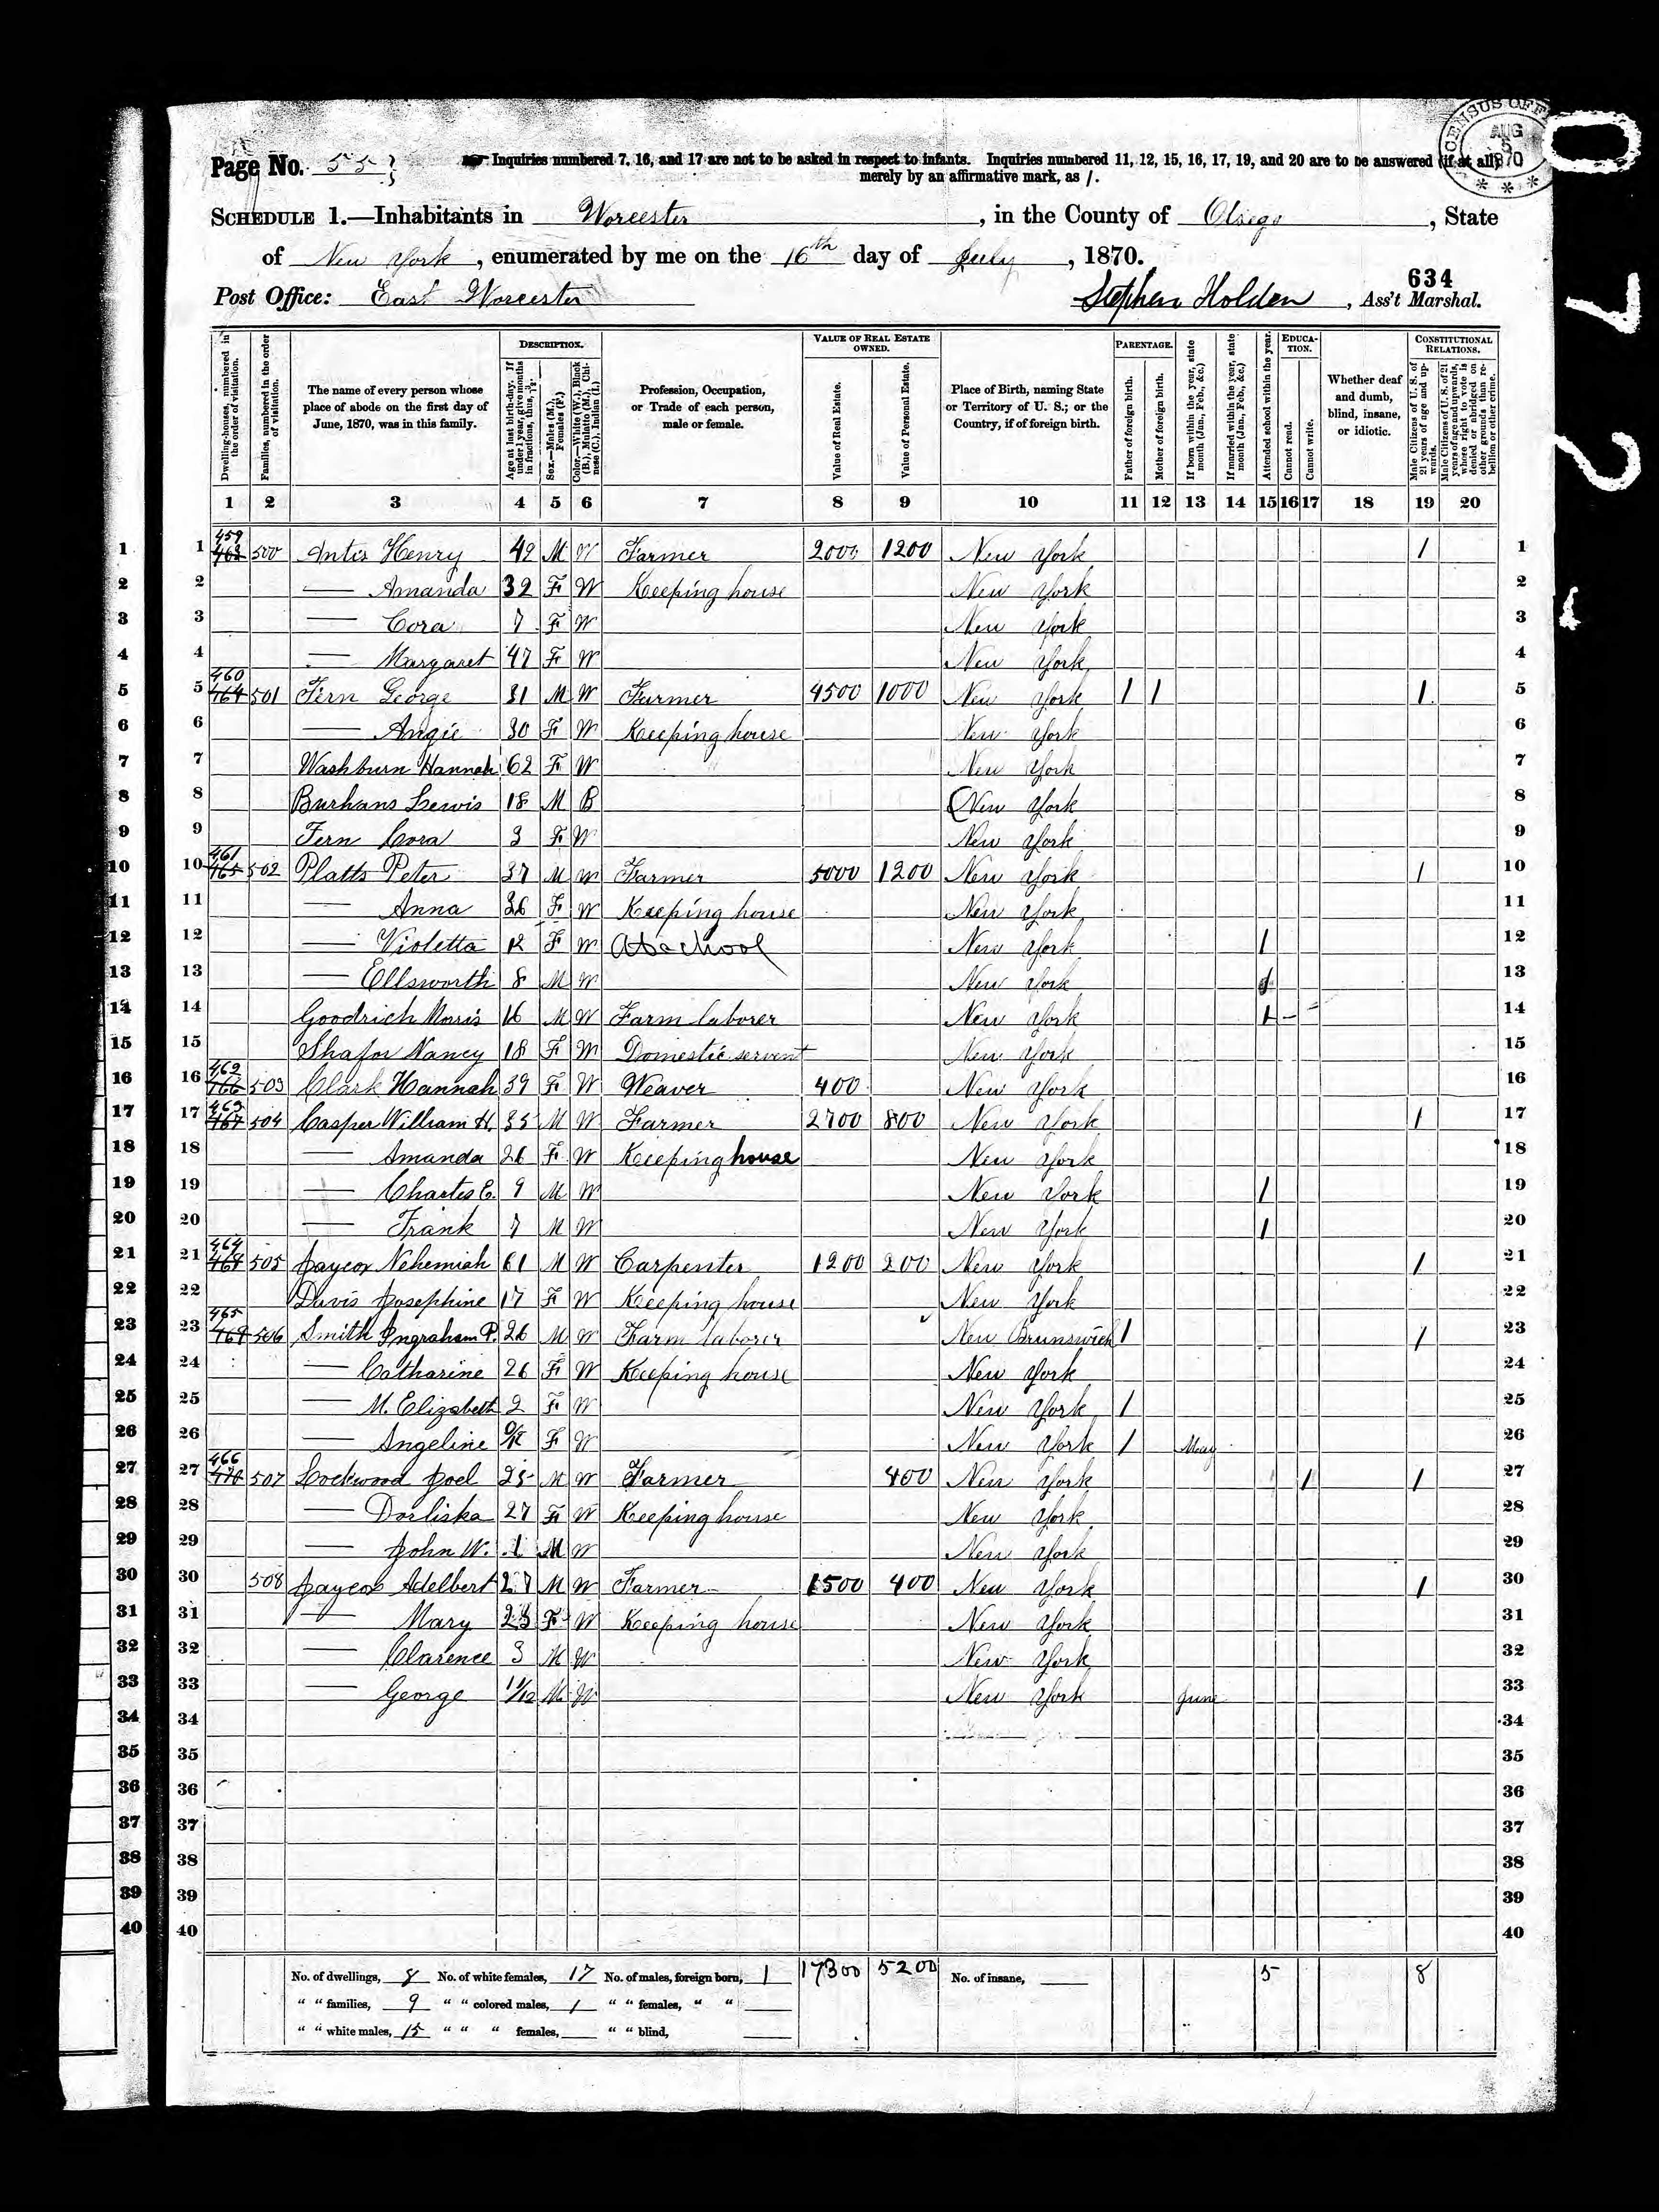 Page No. 55
Inquiries numbered 7, 16, and 17 are not to be asked in respect to infants. Inquiries numbered 11, 12, 15, 16, 17, 19, and 20 are to be answered (if at all)
merely by an affirmative mark, as /.
CENSUS OFF
AUG
5
1870
SCHEDULE 1.—Inhabitants in Worcester, in the County of Otsego, State
of New York, enumerated by me on the 16th day of July, 1870.
634
Post Office: East Worcester Stephen Holden, Ass't Marshal.
Dwelling-houses, numbered in the order of visitation.
Families, numbered in the order of visitation.
The name of every person whose place of abode on the first day of June, 1870, was in this family.
DESCRIPTION.
Age at last birth-day. If under 1 year, give months in fractions, thus, 3/12.
Sex.—Males (M.), Females (F.)
Color.—White (W.), Black (B.), Mulatto (M.), Chinese (C.), Indian (I.)
Profession, Occupation, or Trade of each person, male or female.
VALUE OF REAL ESTATE OWNED.
Value of Real Estate.
Value of Personal Estate.
Place of Birth, naming State or Territory of U. S.; or the Country, if of foreign birth.
PARENTAGE.
Father of foreign birth.
Mother of foreign birth.
If born within the year, state month (Jan., Feb., &c.)
If married within the year, state month (Jan., Feb., &c.)
Attended school within the year.
EDUCATION.
Cannot read.
Cannot write.
Whether deaf and dumb, blind, insane, or idiotic.
CONSTITUTIONAL RELATIONS.
Male Citizens of U. S. of 21 years of age and upwards.
Male Citizens of U. S. of 21 years of age and upwards, where right to vote is denied or abridged on other grounds than rebellion or other crime.
1 2 3 4 5 6 7 8 9 10 11 12 13 14 15 16 17 18 19 20
1 1 459 463 500 Antis Henry 42 M W Farmer 2000 1200 New York / 1
2 2 — Amanda 32 F W Keeping house New York 2
3 3 — Cora 7 F W New York 3
4 4 — Margaret 47 F W New York 4
5 5 460 464 501 Fern George 31 M W Farmer 4500 1000 New York / / / 5
6 6 — Angie 30 F W Keeping house New York 6
7 7 Washburn Hannah 62 F W New York 7
8 8 Burhans Lewis 18 M B New York 8
9 9 Fern Cora 3 F W New York 9
10 10 461 465 502 Platts Peter 37 M W Farmer 5000 1200 New York / 10
11 11 — Anna 36 F W Keeping house New York 11
12 12 — Violetta 12 F W At school New York / 12
13 13 — Ellsworth 8 M W New York / 13
14 14 Goodrich Morris 16 M W Farm laborer New York / 14
15 15 Shafor Nancy 18 F W Domestic servent New York 15
16 16 462 466 503 Clark Hannah 39 F W Weaver 400 New York 16
17 17 463 467 504 Casper William H. 35 M W Farmer 2700 800 New York / 17
18 18 — Amanda 26 F W Keeping house New York 18
19 19 — Charles E. 9 M W New York / 19
20 20 — Frank 7 M W New York / 20
21 21 464 468 505 Jaycox Nehemiah 61 M W Carpenter 1200 200 New York / 21
22 22 Davis Josephine 17 F W Keeping house New York 22
23 23 465 469 506 Smith Ingraham P. 26 M W Farm laborer New Brunswick / / 23
24 24 — Catharine 26 F W Keeping house New York 24
25 25 — M. Elizabeth 2 F W New York / 25
26 26 — Angeline 0/12 F W New York / May 26
27 27 466 470 507 Lockwood Joel 25 M W Farmer 400 New York / / 27
28 28 — Dorliska 27 F W Keeping house New York 28
29 29 — John W. 1 M W New York 29
30 30 508 Jaycox Adelbert 27 M W Farmer 1500 400 New York / 30
31 31 — Mary 23 F W Keeping house New York 31
32 32 — Clarence 3 M W New York 32
33 33 — George 11/12 M W New York June 33
34 34 34
35 35 35
36 36 36
37 37 37
38 38 38
39 39 39
40 40 40
No. of dwellings, 8 No. of white females, 17 No. of males, foreign born, 1 17300 5200 No. of insane, 5 8
" " families, 9 " " colored males, 1 " " females, " "
" " white males, 15 " " " females, " " blind,
072